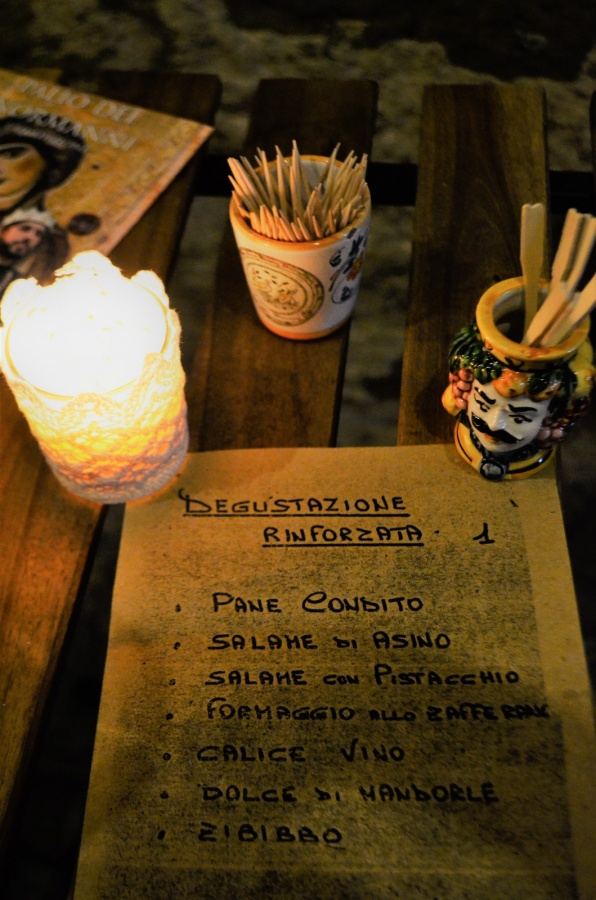 PALIO DEI
NORMANNI
DEGUSTAZIONE
RINFORZATA 1
• PANE CONDITO
• SALAME DI ASINO
• SALAME CON PISTACCHIO
• FORMAGGIO ALLO ZAFFERANO
• CALICE VINO
• DOLCE DI MANDORLE
• ZIBIBBO